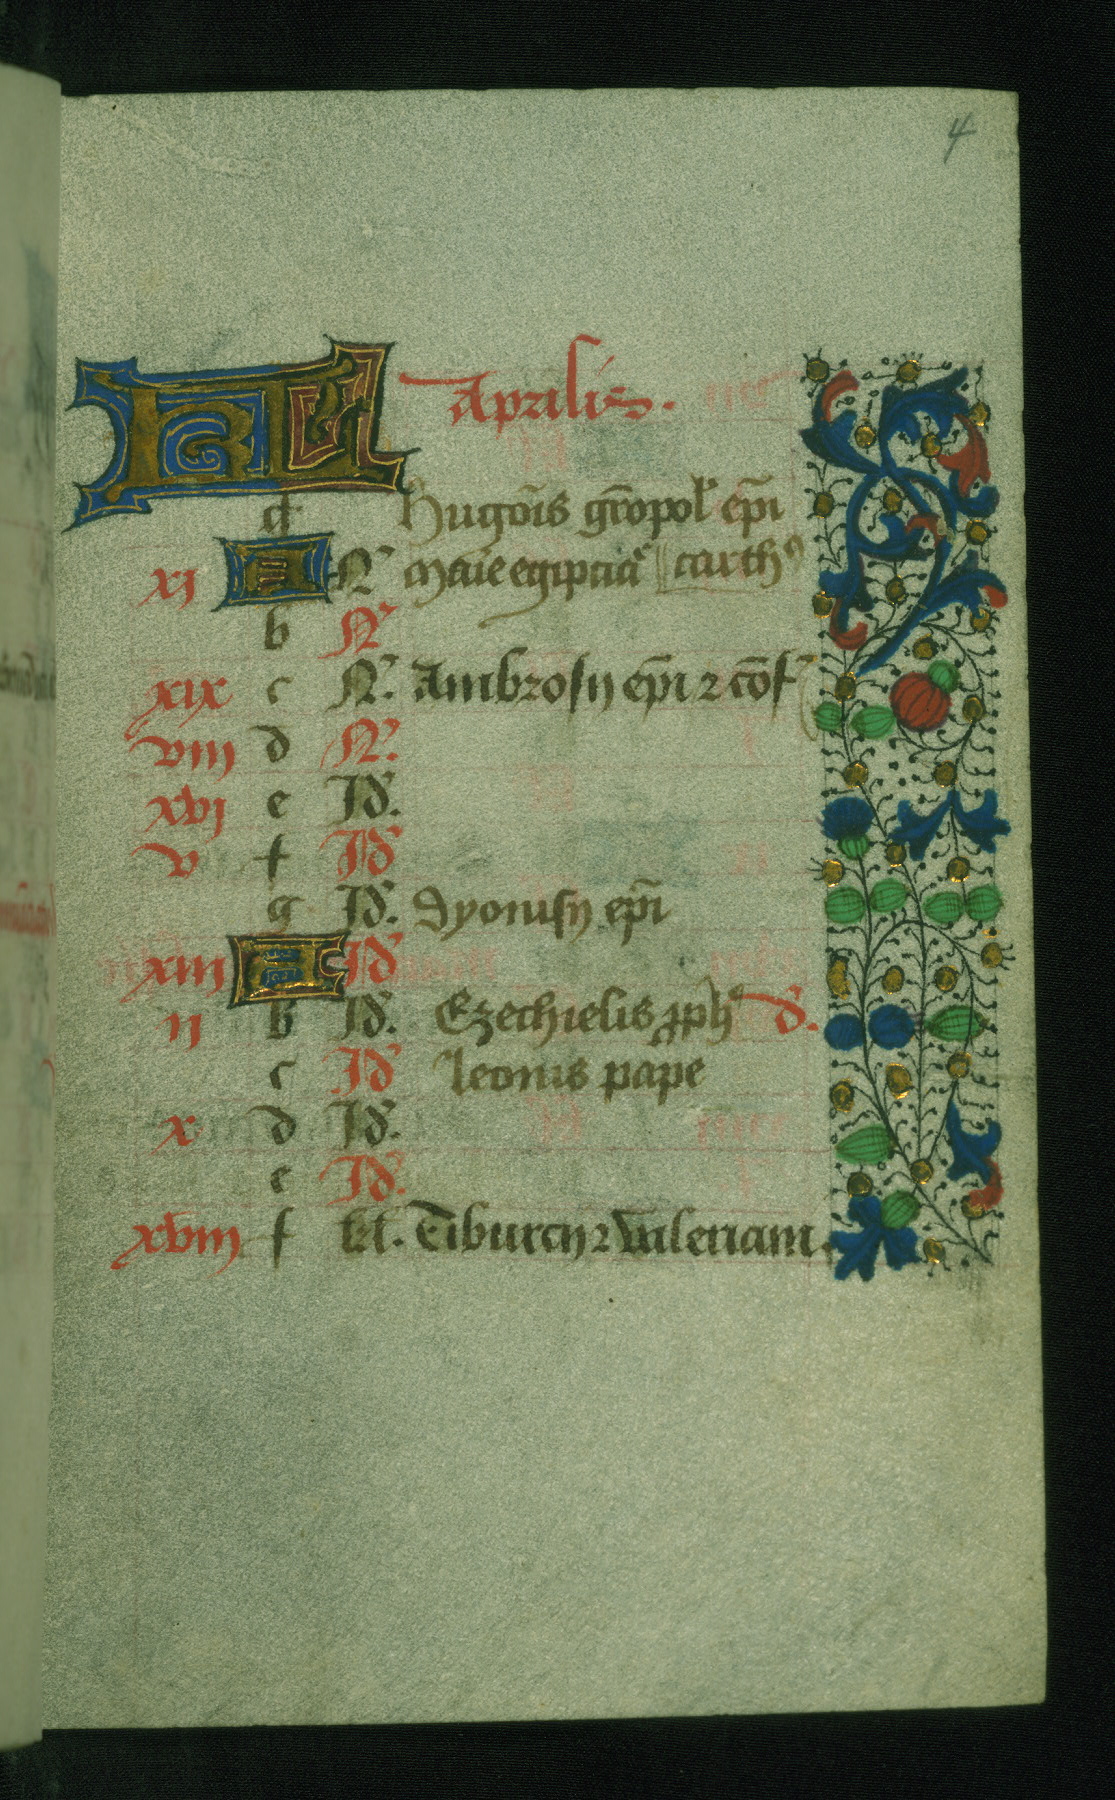 4
KL Aprilis.
g Hugōis gr̄opol' ep̄i
xj A N' Marie egiptiac' carth9
b N'
xix c N'. Ambrosij ep̄i 2 cōf'
viij d N'.
xvj e Id'.
v f Id'
g Id'. Dyonisij ep̄i
xiij A Id'
ij b Id'. Ezechielis pph' d'.
c Id' Leonis pape
x d Id'.
e Id'.
xviij f kl'. Tiburcij 2 Valeriani.